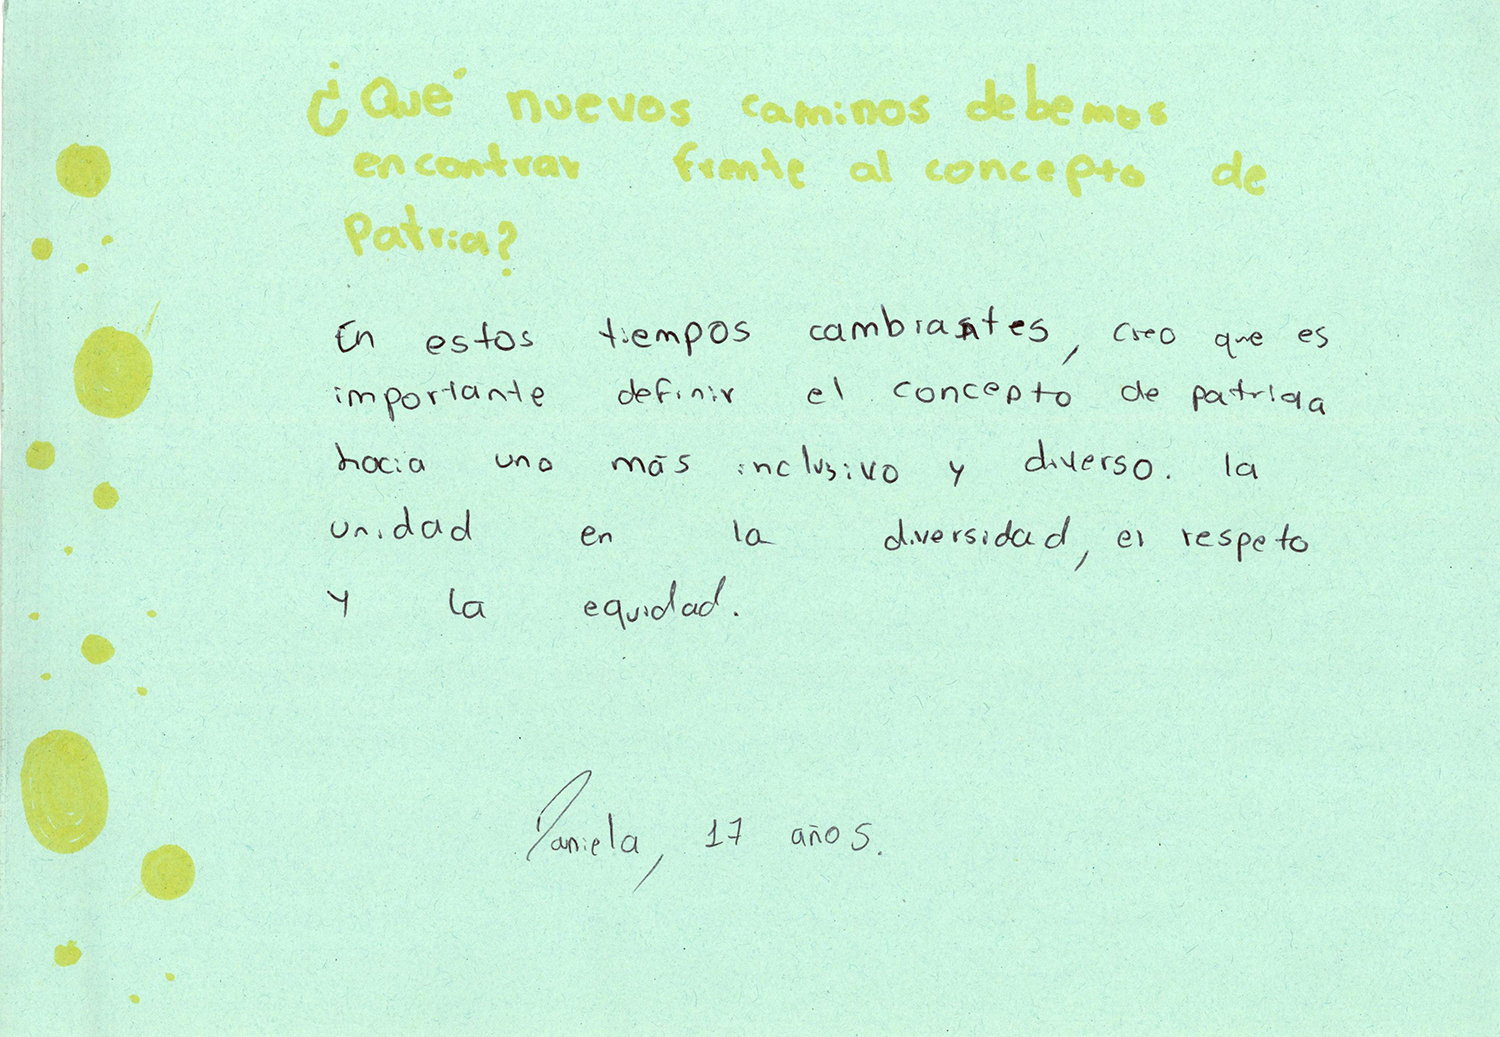 ¿Qué nuevos caminos debemos
encontrar frente al concepto de
Patria?
En estos tiempos cambiantes, creo que es
importante definir el concepto de patriaa
hacia uno más inclusivo y diverso. la
unidad en la diversidad, el respeto
y la equidad.
Daniela, 17 años.